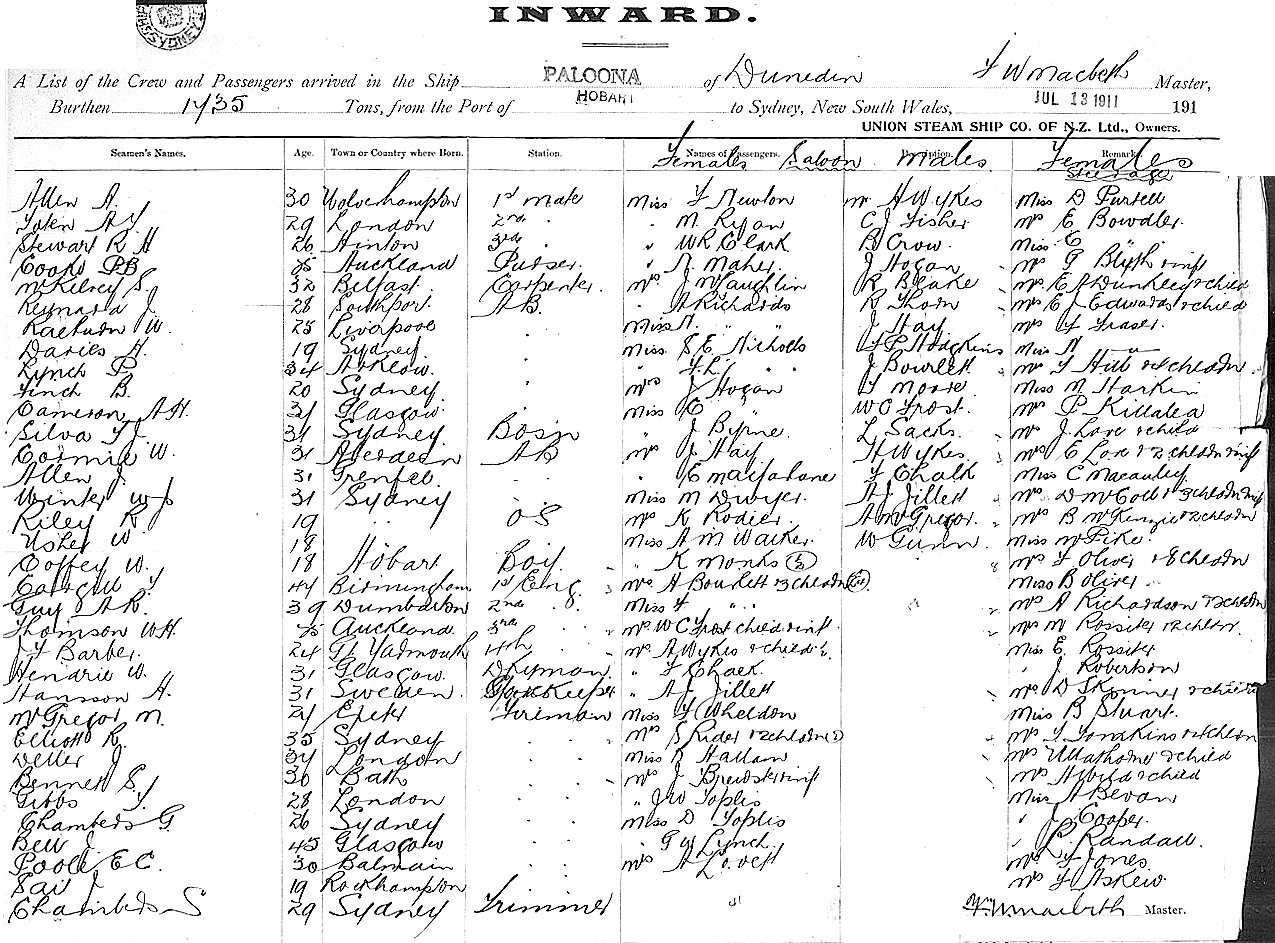 INWARD.
A List of the Crew and Passengers arrived in the Ship PALOONA of Dunedin F W Macbeth Master,
Burthen 1735 Tons, from the Port of HOBART to Sydney, New South Wales, JUL 13 1911 191
UNION STEAM SHIP CO. OF N.Z. Ltd., Owners.
Seamen's Names. Age. Town or Country where Born. Station. Names of Passengers. Description. Remarks
Females Saloon Males Females
Steerage
Allen A. 30 Wolverhampton 1st mate Miss F Newton Mr A Wykes Miss D Purtell
29 London 2nd " M. Ryan C J Fisher Mrs E Bowdler
Stewart R H 26 Hinton 3rd " W R Clark B Crow Miss E "
Cooke PB Auckland Purser " N. Maher J Hogan Mrs G Blyth
McKilrey S 32 Belfast Carpenter Mrs J McLaughlin R Blake Mrs E A Dunkley & child
28 Southport AB " A Richards R Thorn Mrs E J Edwards & child
Raeburn W. 25 Liverpool Miss N. " " J Hay Mrs F Fraser
Davies H. 19 Sydney Miss S E Nicholls Hodgkins Miss N
Lynch P 34 Arklow " F. L. " J Bowlett Mrs F Hill & chldn
Finch B. 20 Sydney Mrs J Hogan T Moore Miss M Harkin
Cameron A H. Glasgow Miss C " W C Frost Mrs P Killalea
Silva F J 31 Sydney Bosn " J Byrne L Sacks Mrs J Love & child
Cormie W. 31 Aberdeen AB Mrs J Hay H Wykes Mrs C Love & 2 chldn
Allen J 31 Grenfell " E Macfarlane F Chalk Miss C Macauley
Winter W J 31 Sydney Miss M Dwyer A J Jillett Mrs D McColl & 3 chldn
Riley R 19 " OS Mrs K Rodier A McGregor Mrs B McKenzie & 2 chldn
Usher W 18 " Miss A M Walker W Gunn Miss McPike
Coffey W. 18 Hobart Boy " K Monks (½) Mrs F Oliver & chldn
44 Birmingham 1st Eng. Mrs A Bowlett & 3 chldn Miss B Oliver
Guy A R. 39 Dumbarton 2nd " Miss F " " Mrs A Richardson & 2 chldn
Thomson W H. Auckland 3rd " Mrs W C Frost child Mrs M Rossiter & 2 chldn
J F Barber 24 Gt Yarmouth 4th " Mrs A Wykes & child Miss E. Rossiter
Hendrie W. 31 Glasgow Dkyman " F Chalk " J Robertson
Hansson H. 31 Sweden Storekeeper " A J Jillett Mrs D Skinner & child
McGregor M. Fireman Miss F Wheldon Miss B Stuart
Elliott R. 35 Sydney Mrs S Rider & 2 chldn Mrs F Tomkins & chldn
Weller J 34 London Miss R Hallam Mrs & child
Bennett S 30 Bath Mrs J Brewster Mrs A Wild & child
Gibbs F. 28 London " J W Toplis Miss A Bevan
Chambers G. 26 Sydney Miss D Toplis " J Cooper
Bell J. 45 Glasgow " G M Lynch " L Randall
Poole E C. 30 Balmain Mrs A Lovett Mrs F Jones
J 19 Rockhampton Mrs F Askew
Chambers S 29 Sydney Trimmer F W Macbeth Master.